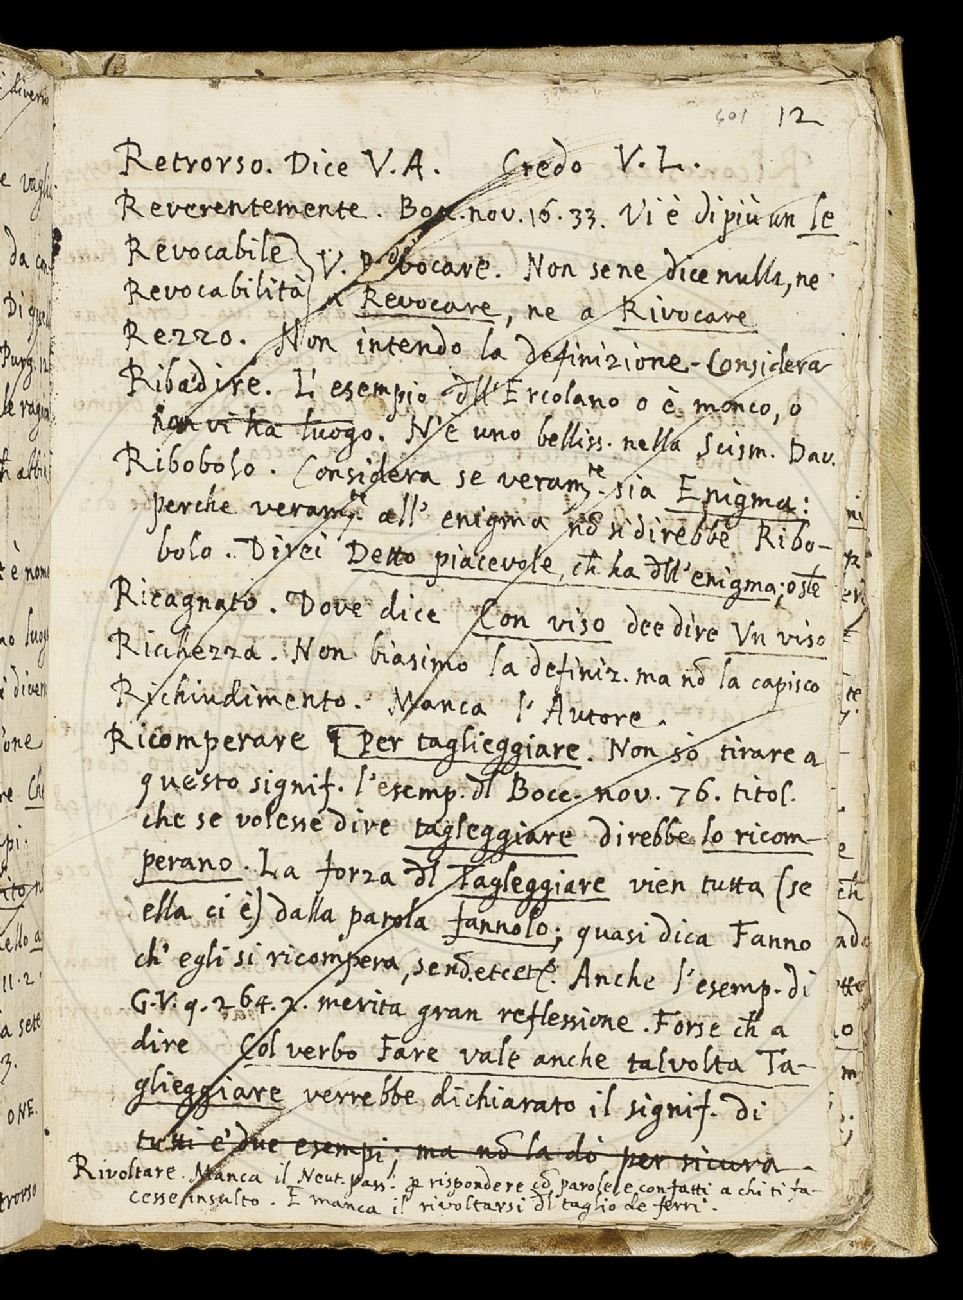 601 12
Retrorso. Dice V. A. Credo V. L.
Reverentemente. Bocc. nov. 16. 33. Vi è di più un le
Revocabile
Revocabilità } V. Provocare. Non se ne dice nulla, ne
a Revocare, ne a Rivocare
Rezzo. Non intendo la definizione - Considera
Ribadire. L' esempio dll' Ercolano o è monco, o
non vi ha luogo. N'è uno belliss. nella Scism. Dav.
Ribobolo. Considera se veram.te sia Enigma:
perche veram.te all' enigma nō si direbbe Ribo-
bolo. Direi Detto piacevole, ch̄ ha dll' enigma; o
Ricagnato. Dove dice Con viso dee dire Vn viso
Ricchezza. Non biasimo la definiz. ma nō la capisco
Richiudimento. Manca l' Autore.
Ricomperare ¶ Per taglieggiare. Non so tirare a
questo signif. l'esemp. dl Bocc. nov. 76. titol.
che se volesse dire tagleggiare direbbe lo ricom-
perano. La forza dl Tagleggiare vien tutta (se
ella ci è) dalla parola fannolo; quasi dica Fanno
ch' egli si ricompera, senō etcet. Anche l'esemp. di
G. V. 9. 264. 2. merita gran reflessione. Forse ch̄ a
dire Col verbo Fare vale anche talvolta Ta-
glieggiare verrebbe dichiarato il signif. di
tutti e' due esempi; ma nō la dò per sicura.
Rivoltare. Manca il Neut. pass. p rispondere cō parole, e con fatti a chi ti fa-
cesse insulto. E manca il rivoltarsi dl taglio de ferri.